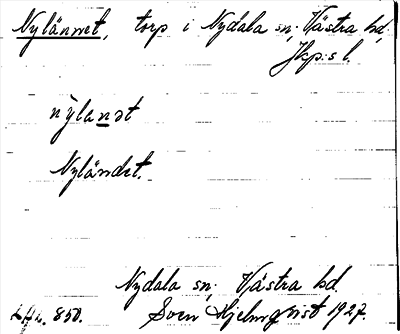 Nylännet, torp i Nydala sn, Västra hd,
Jkp:s l.
nýlanət
Nyländet.
Nydala sn, Västra hd.
850. Sven Hjelmqvist 1927.